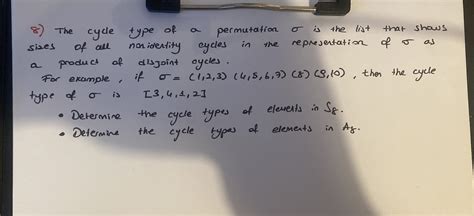 8) The cycle type of a permutation σ is the list that shows
sizes of all nonidentity cycles in the representation of σ as
a product of disjoint cycles.
For example, if σ = (1,2,3) (4,5,6,7) (8) (9,10), then the cycle
type of σ is [3,4,1,2]
• Determine the cycle types of elements in S8.
• Determine the cycle types of elements in A8.